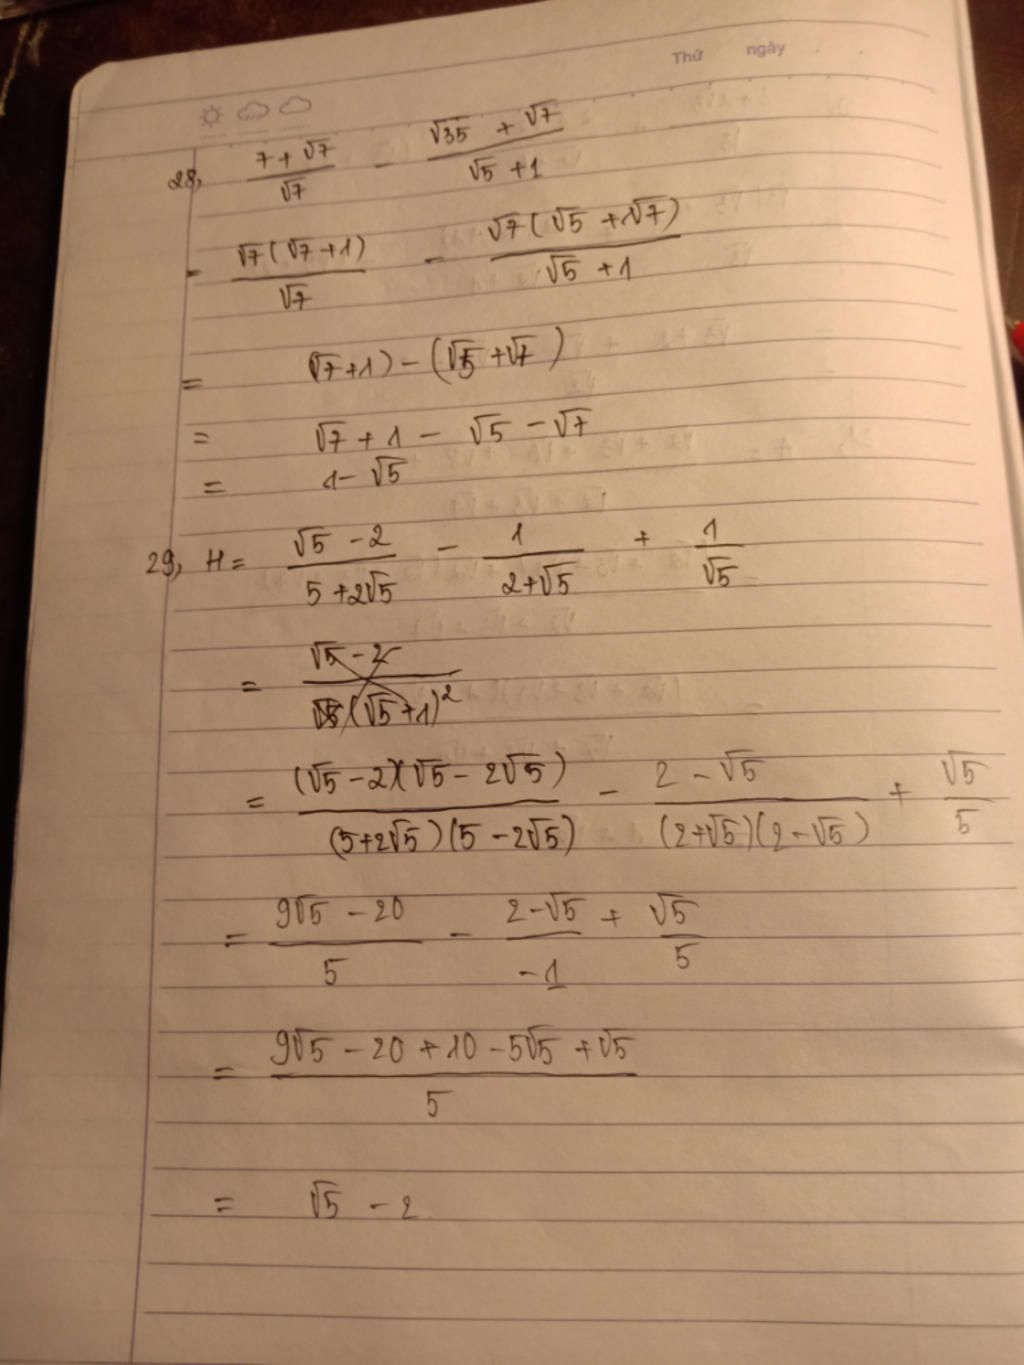 Thứ ngày
28, (7+√7)/√7 - (√35 + √7)/(√5 + 1)
= √7(√7+1)/√7 - √7(√5 + 1√7)/(√5 + 1)
= (√7+1) - (√5 + √7)
= √7 + 1 - √5 - √7
= 1 - √5
29, H = (√5 - 2)/(5 + 2√5) - 1/(2+√5) + 1/√5
= (√5 - 2)/(√5(√5+1)²)
= (√5 - 2)(√5 - 2√5)/((5+2√5)(5 - 2√5)) - (2 - √5)/((2+√5)(2 - √5)) + √5/5
= (9√5 - 20)/5 - (2-√5)/(-1) + √5/5
= (9√5 - 20 + 10 - 5√5 + √5)/5
= √5 - 2